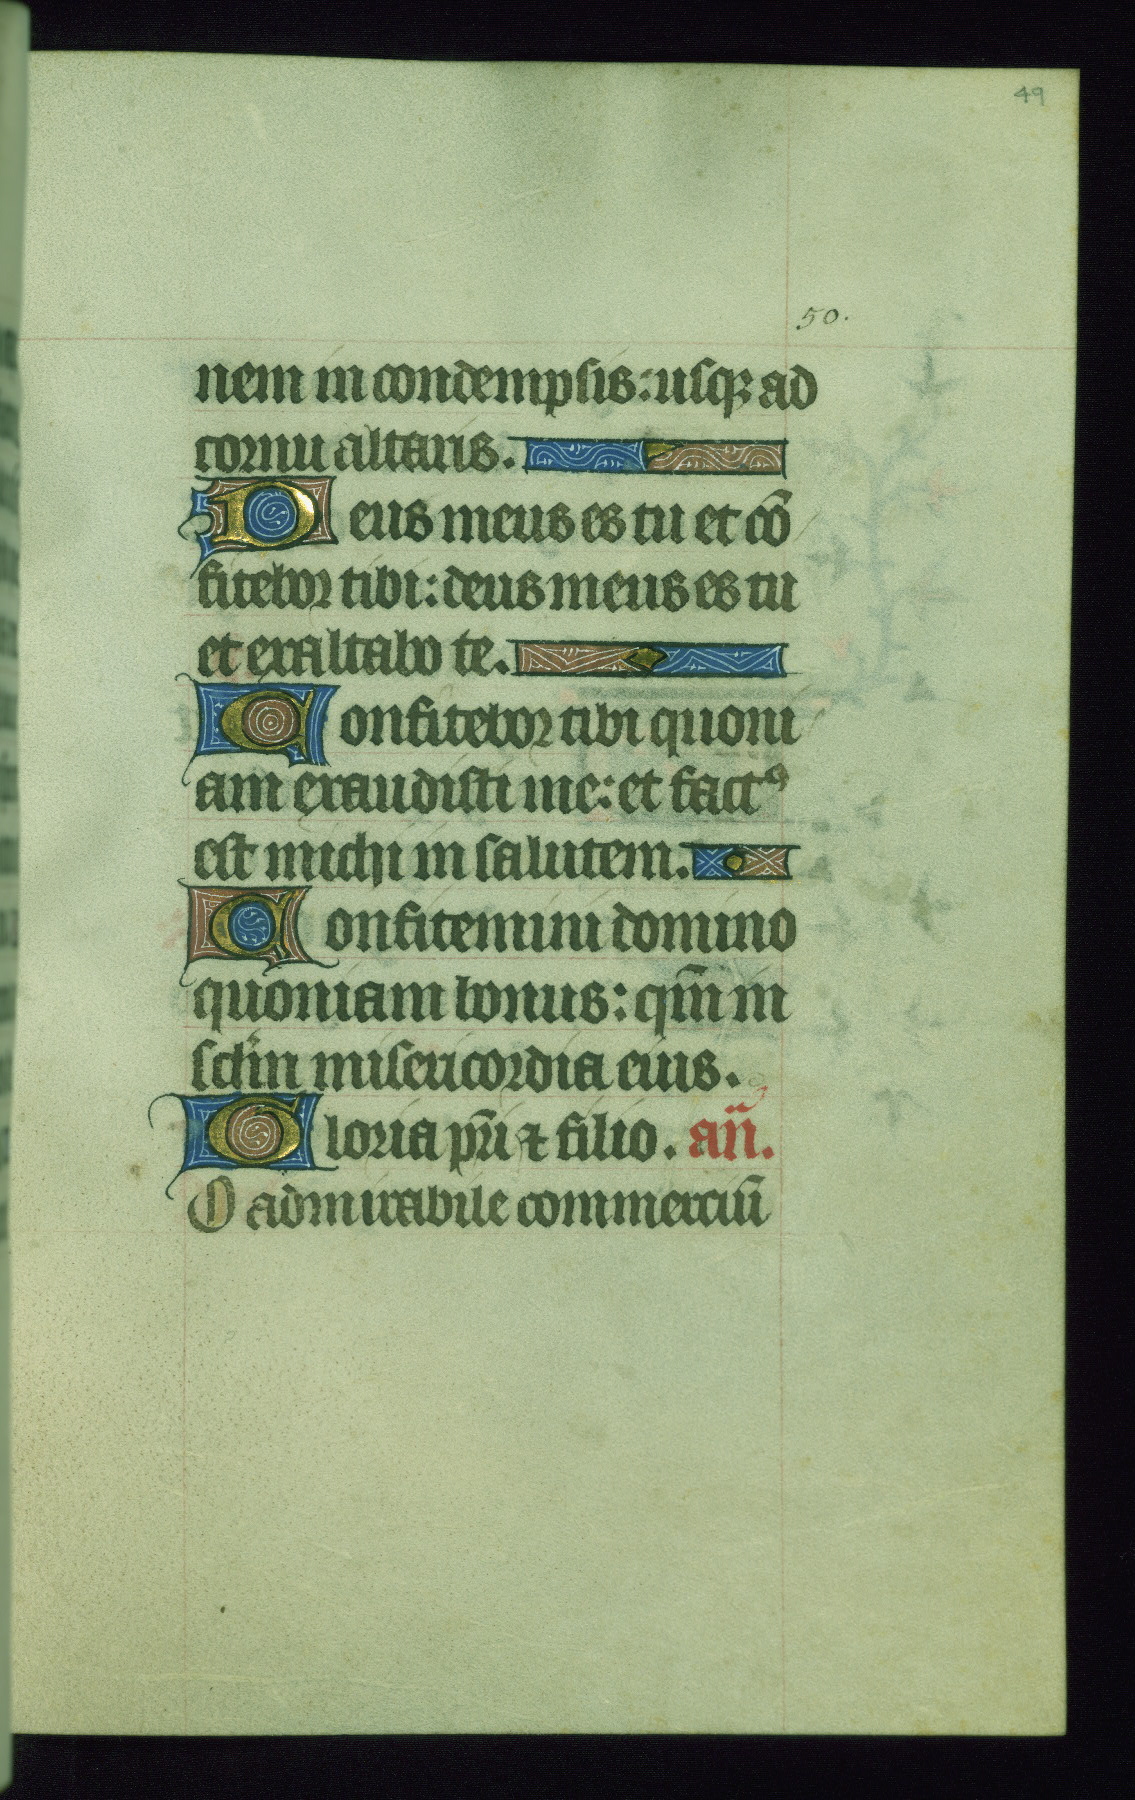 49
50.
nem in condempsis: usqꝫ ad
cornu altaris.
Deus meus es tu et cō
fitebor tibi: deus meus es tu
et exaltabo te.
Confitebor tibi quoni
am exaudisti me: et factꝰ
est michi in salutem.
Confitemini domino
quoniam bonus: qm̄ in
sclm̄ misericordia eius.
Gloria pr̄i ⁊ filio. an̄.
O admirabile commerciū